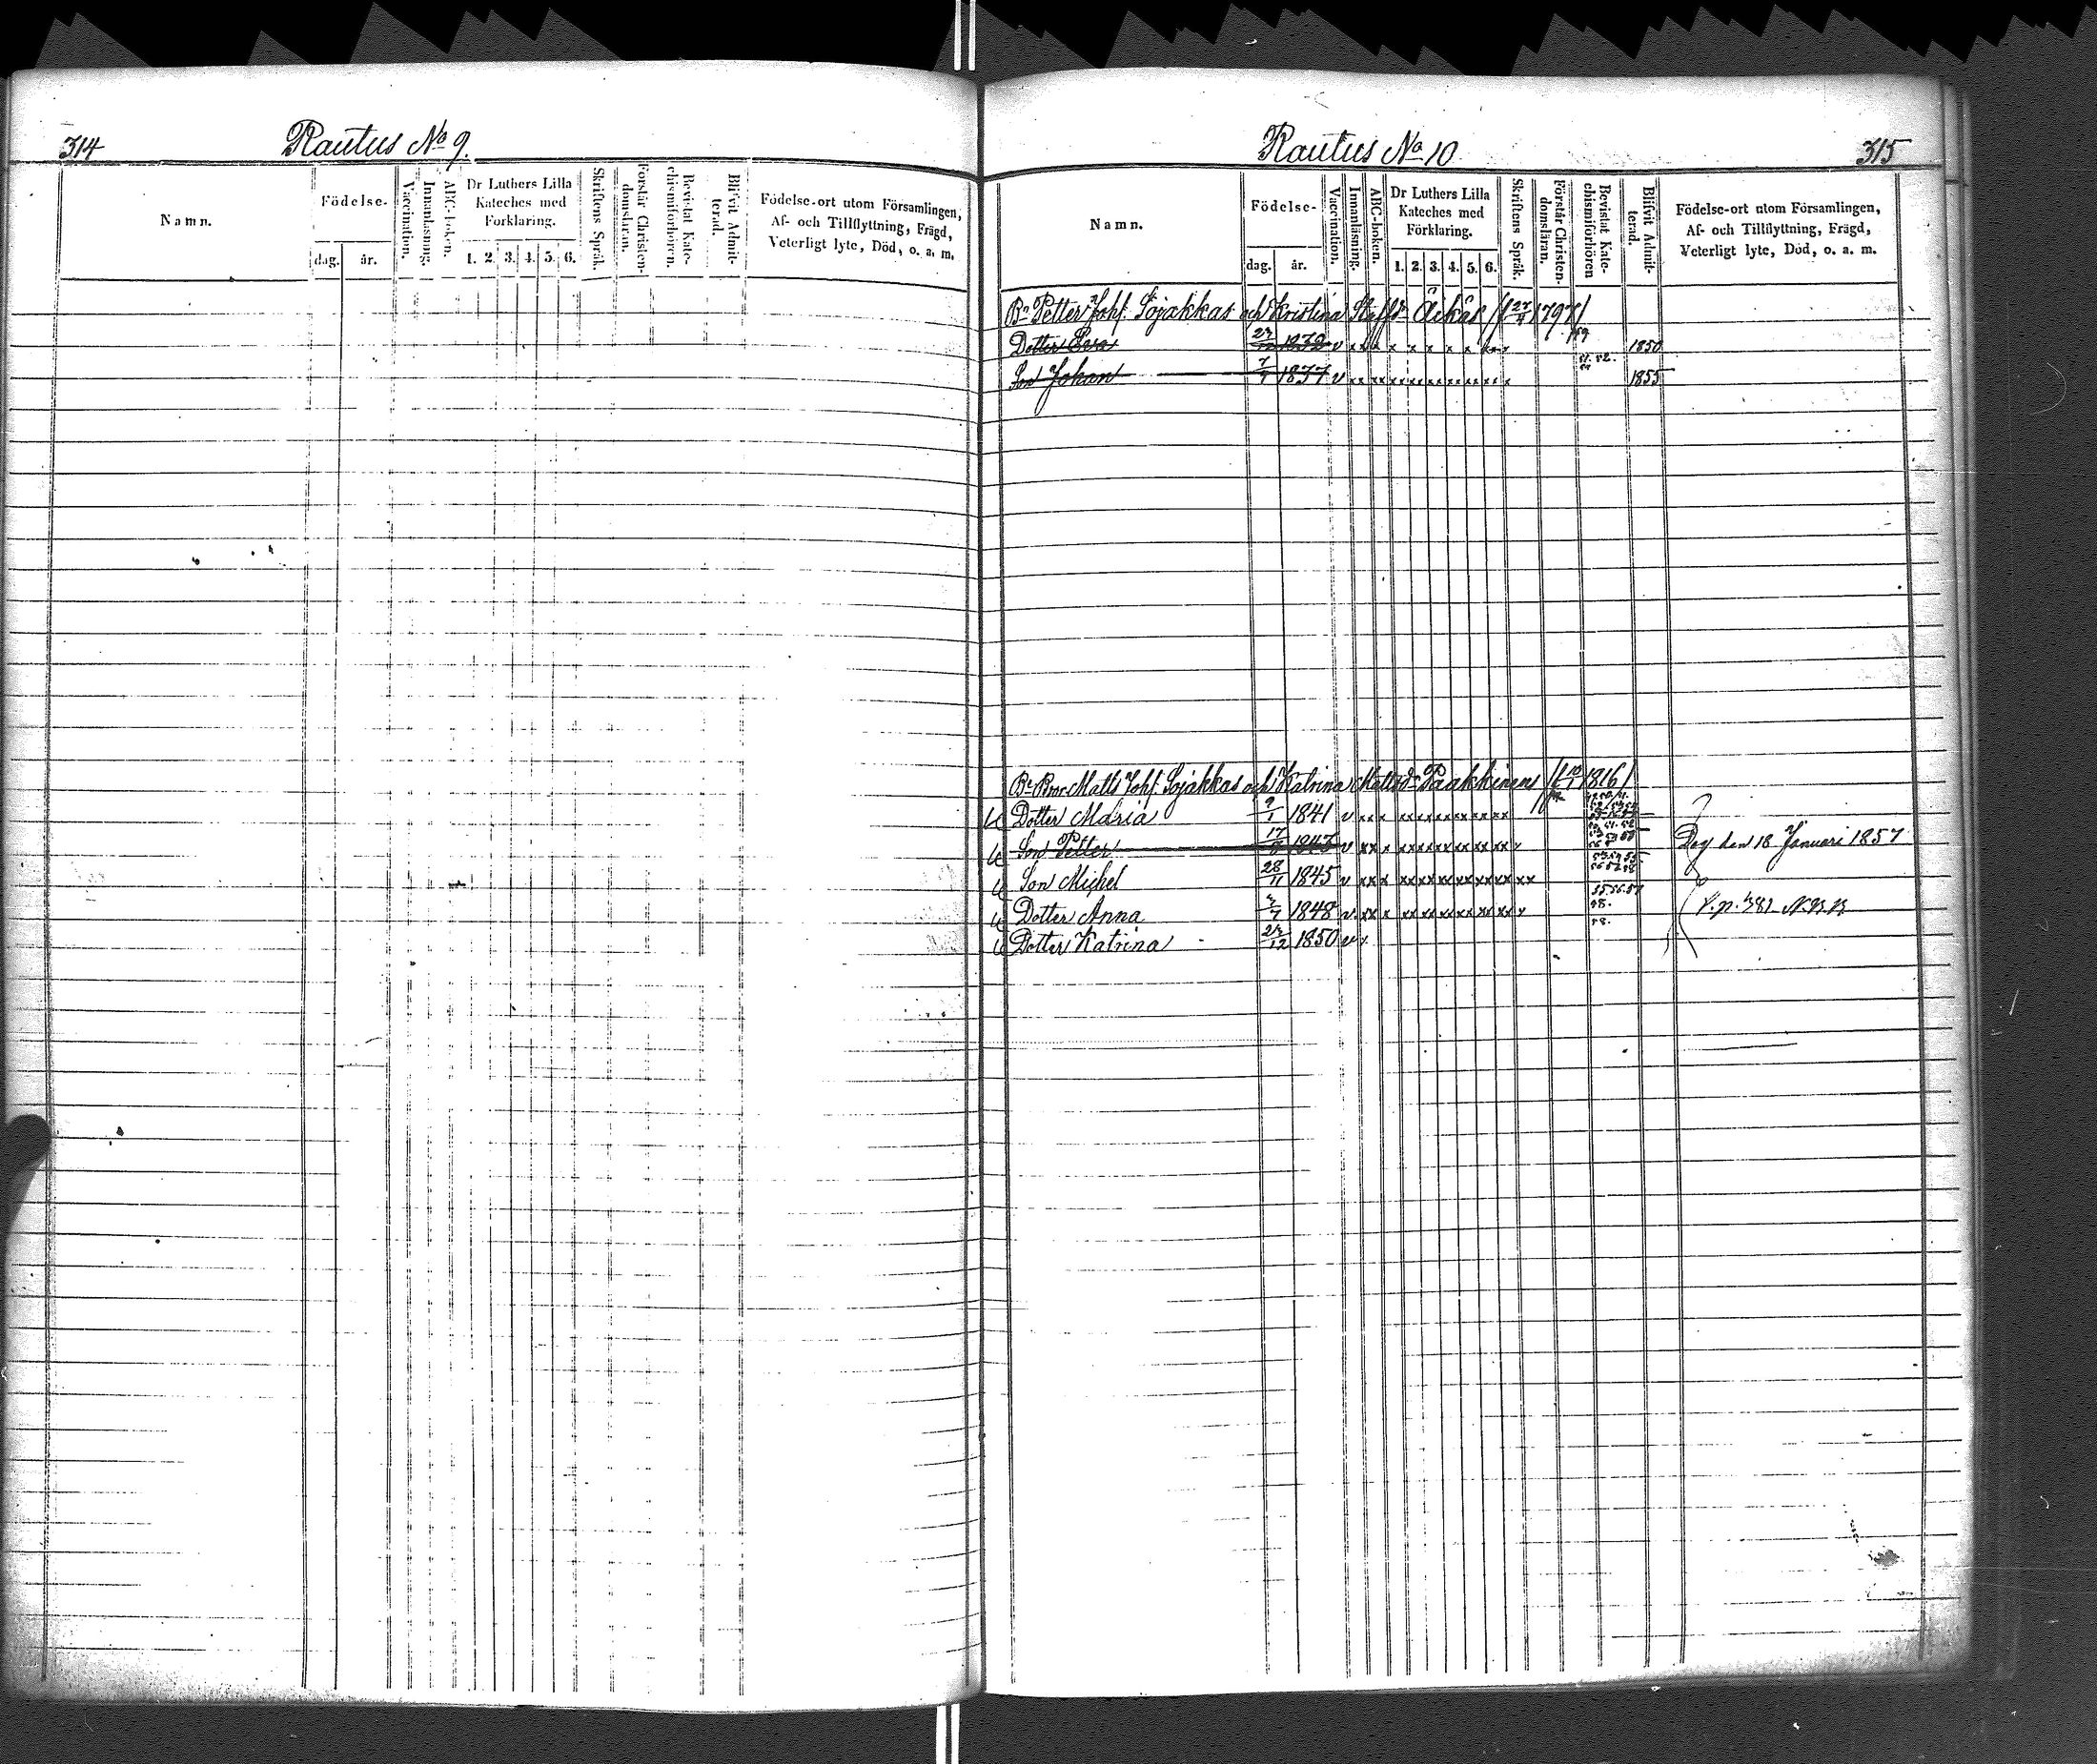 314
Rautus No 9.
Namn.
Födelse-
dag.
år.
Vaccination.
Innanläsning.
ABC-boken.
Dr Luthers Lilla
Kateches med
Förklaring.
1. 2. 3. 4. 5. 6.
Skriftens Språk.
Förstår Christen-
domsläran.
Bevistat Kate-
chismiförhören.
Blifvit Admit-
terad.
Födelse-ort utom Församlingen,
Af- och Tillflyttning, Frägd,
Veterligt lyte, Död, o. a. m.
Rautus No 10
315
Namn.
Födelse-
dag.
år.
Vaccination.
Innanläsning.
ABC-boken.
Dr Luthers Lilla
Kateches med
Förklaring.
1. 2. 3. 4. 5. 6.
Skriftens Språk.
Förstår Christen-
domsläran.
Bevistat Kate-
chismiförhören
Blifvit Admit-
terad.
Födelse-ort utom Församlingen,
Af- och Tillflyttning, Frägd,
Veterligt lyte, Död, o. a. m.
Petter Johs. Sojakkas och Kristina 1797
Dotter Eva 1832 v x x x x x x x x 1850
Son Johan 1837 v x x x x x x x x x x 1855
Bror Matts Johs. Sojakkas och Katrina Mattsdr Paakkinens 1816
Dotter Maria 9/1 1841 v x x x x x x x x x x
Son Petter 1843 v x x x x x x x x x x Dog den 18 Januari 1857
Son Michel 28/11 1845 v x x x x x x x x x x x
Dotter Anna 1848 v x x x x x x x x x
Dotter Katrina 1850 v